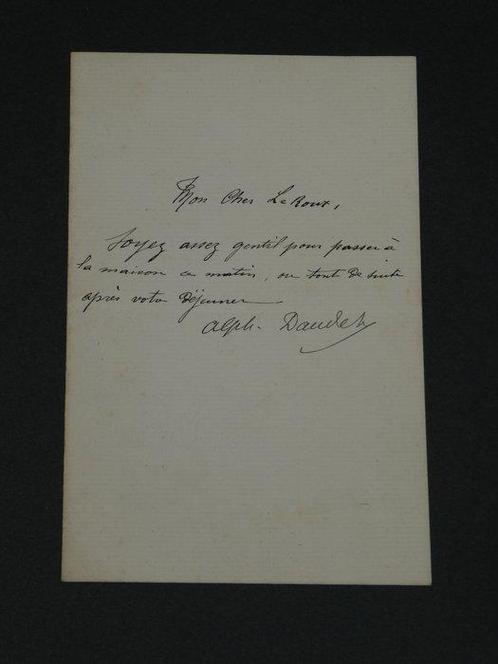 Mon Cher LeRoux,
Soyez assez gentil pour passer à
la maison ce matin, ou tout de suite
après votre déjeuner
Alph. Daudet